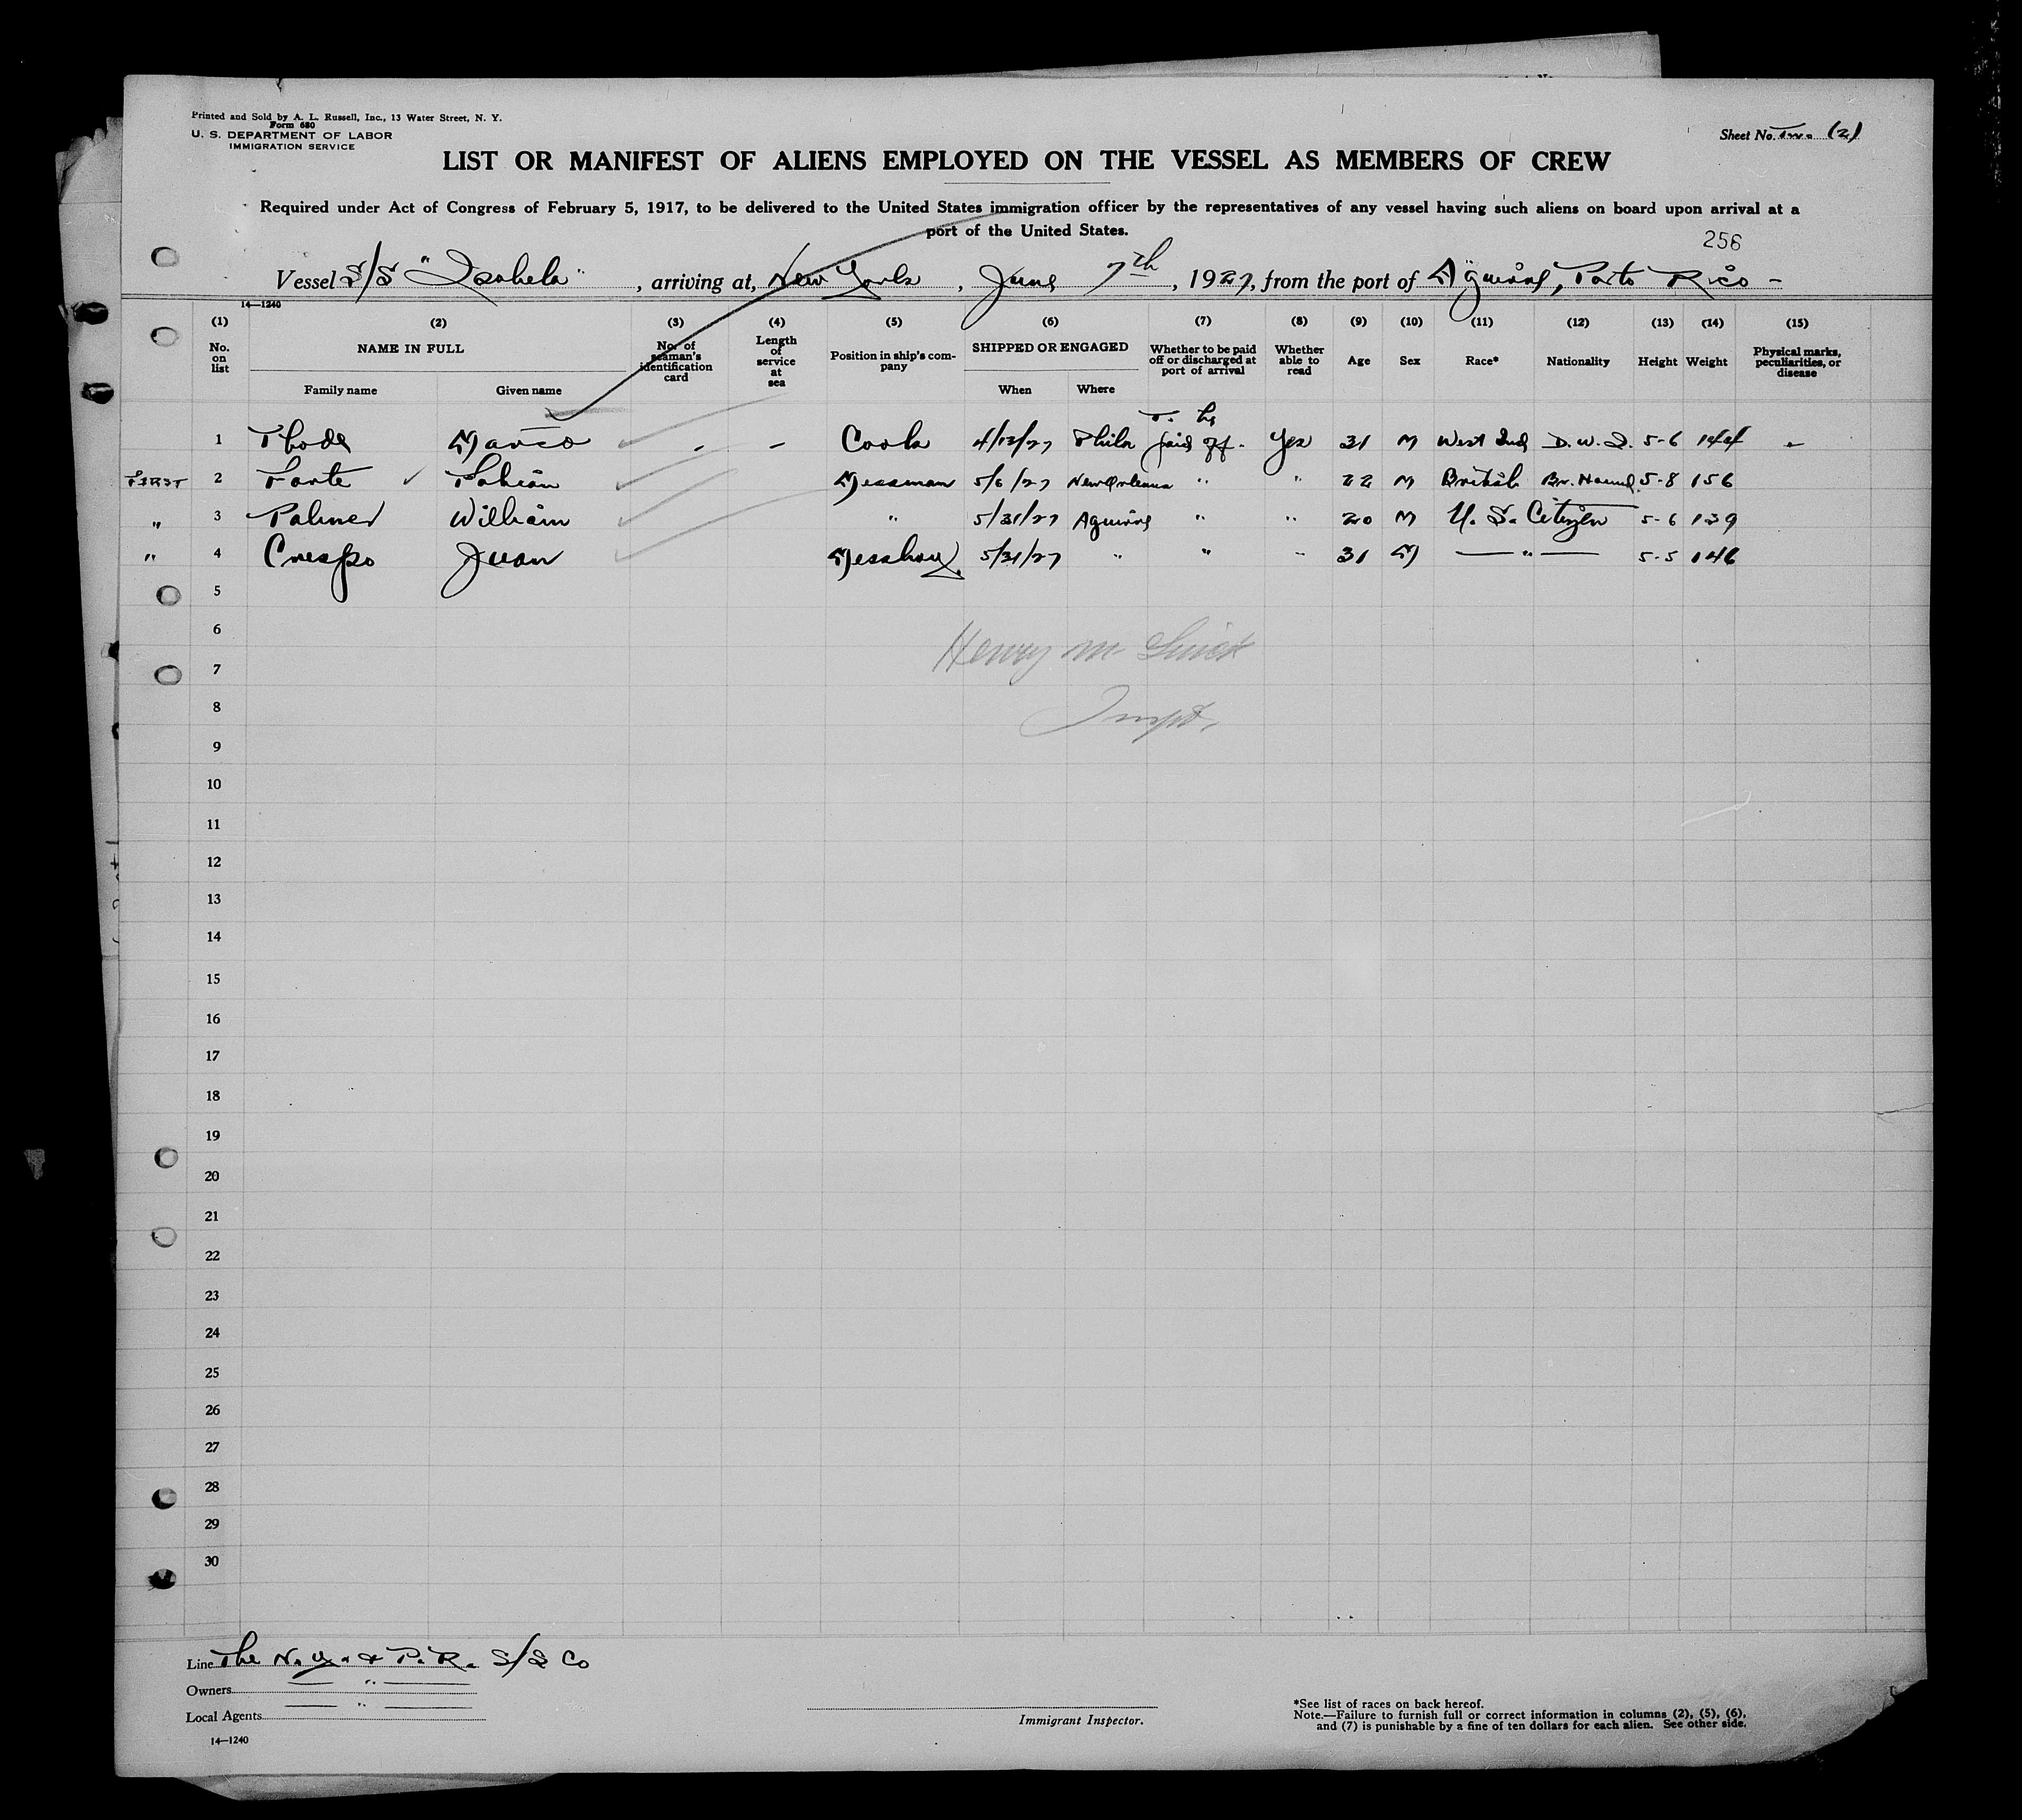 Printed and Sold by A. L. Russell, Inc., 13 Water Street, N. Y.
Form 680
U. S. DEPARTMENT OF LABOR
IMMIGRATION SERVICE
Sheet No. Two (2)
LIST OR MANIFEST OF ALIENS EMPLOYED ON THE VESSEL AS MEMBERS OF CREW
Required under Act of Congress of February 5, 1917, to be delivered to the United States immigration officer by the representatives of any vessel having such aliens on board upon arrival at a
port of the United States.
256
Vessel S/S "Isabela", arriving at, New York, June 7th, 1927, from the port of Aguirre, Porto Rico -
14—1240
(1) (2) (3) (4) (5) (6) (7) (8) (9) (10) (11) (12) (13) (14) (15)
No. on list NAME IN FULL Family name Given name No. of seaman's identification card Length of service at sea Position in ship's company SHIPPED OR ENGAGED When Where Whether to be paid off or discharged at port of arrival Whether able to read Age Sex Race* Nationality Height Weight Physical marks, peculiarities, or disease
1 - - Cook 4/13/27 Phila To be paid off. Yes 31 M West Ind D. W. I. 5-6 144 -
First 2 Forte Fabian Messman 5/6/27 New Orleans " " 22 M British Br. Hond. 5-8 156
" 3 Palmer William " 5/31/27 Aguirre " " 20 M U. S. Citizen 5-6 139
" 4 Crespo Juan Messboy 5/31/27 " " " 31 M — " — 5-5 146
5
6
Henry M
7
8
Inspt.
9
10
11
12
13
14
15
16
17
18
19
20
21
22
23
24
25
26
27
28
29
30
Line The N. Y. & P. R. S/S Co
Owners — " —
Local Agents — " —
Immigrant Inspector.
*See list of races on back hereof.
Note.—Failure to furnish full or correct information in columns (2), (5), (6),
and (7) is punishable by a fine of ten dollars for each alien. See other side.
14—1240